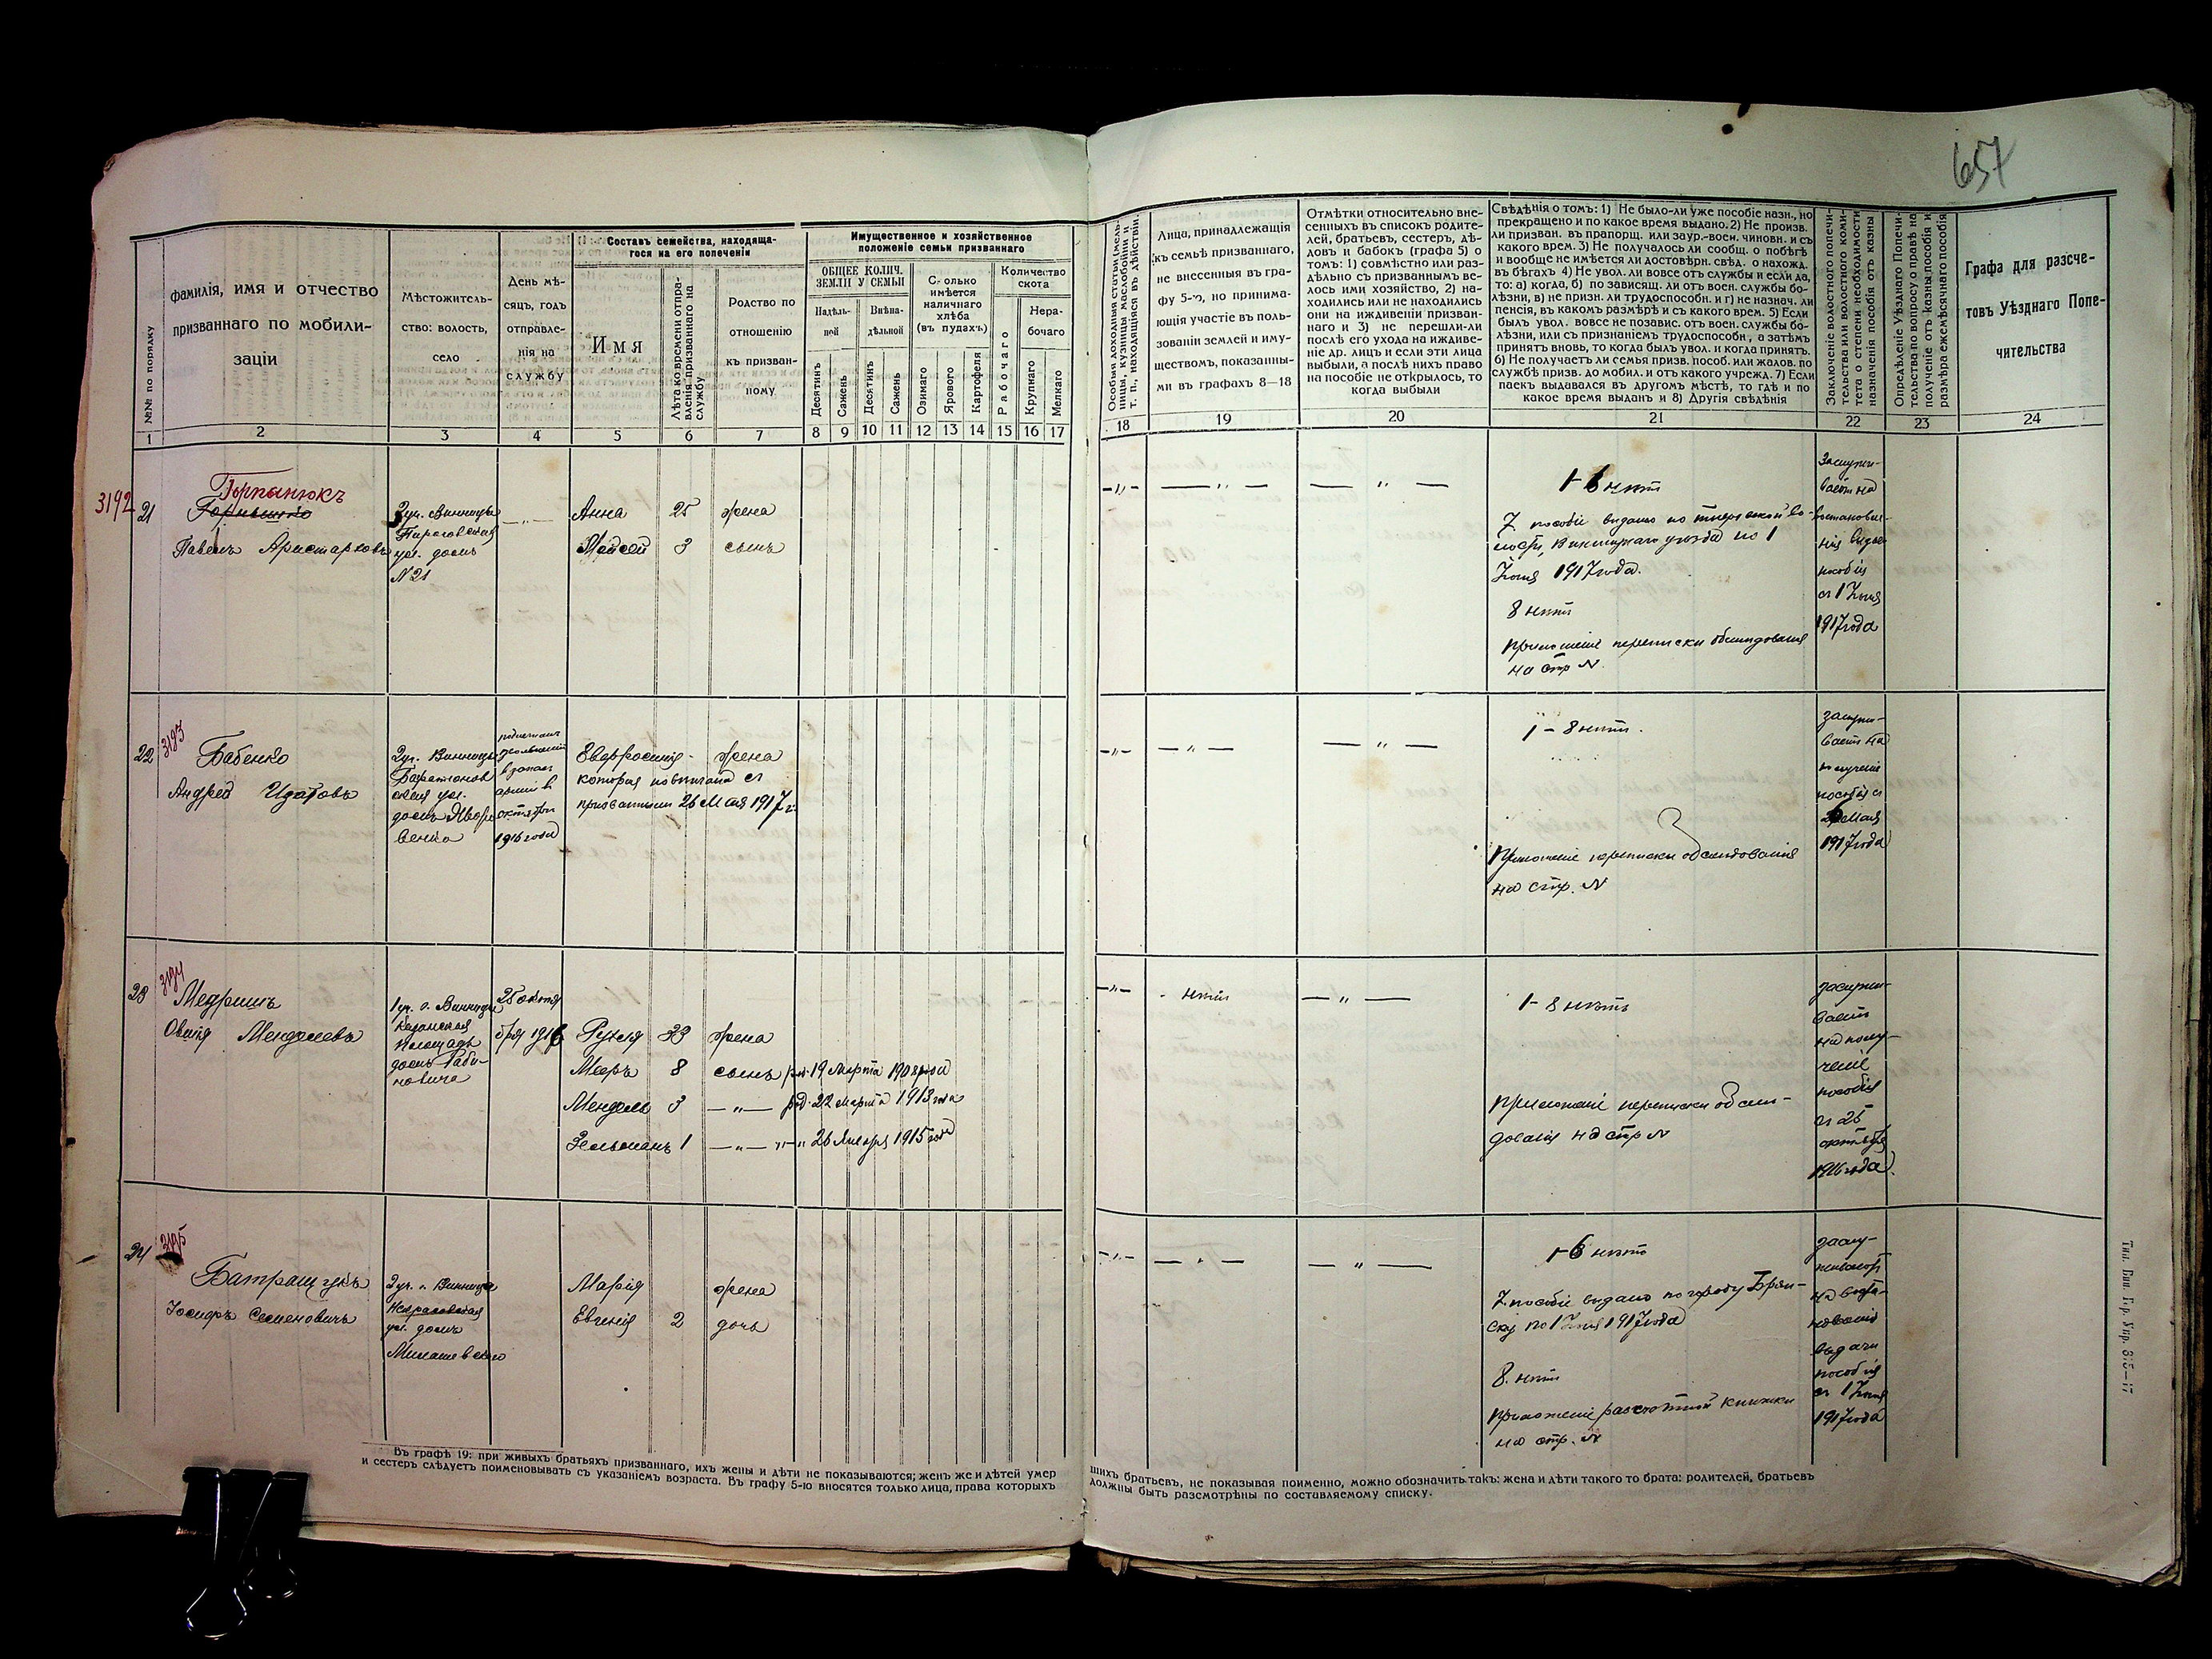 657
№№ по порядку
фамилія, имя и отчество
призваннаго по мобили-
заціи
Мѣстожитель-
ство: волость,
село
День мѣ-
сяцъ, годъ
отправле-
нія на
службу
Составъ семейства, находяща-
гося на его попеченіи
Имя
Лѣта ко времени отпра-
вленія призваннаго на
службу
Родство по
отношенію
къ призван-
ному
Имущественное и хозяйственное
положеніе семьи призваннаго
ОБЩЕЕ КОЛИЧ.
ЗЕМЛИ У СЕМЬИ
Надѣль-
ной
Внѣна-
дѣльной
Сколько
имѣется
наличнаго
хлѣба
(въ пудахъ)
Количество
скота
Нера-
бочаго
Десятинъ
Сажень
Десятинъ
Сажень
Озимаго
Ярового
Картофеля
Рабочаго
Крупнаго
Мелкаго
Особыя доходныя статьи (мель-
ницы, кузницы, маслобойни и
т. п., находящіяся въ дѣйствіи.
Лица, принадлежащія
къ семьѣ призваннаго,
не внесенныя въ гра-
фу 5-ю, но принима-
ющія участіе въ поль-
зованіи землей и иму-
ществомъ, показанны-
ми въ графахъ 8—18
Отмѣтки относительно вне-
сенныхъ въ списокъ родите-
лей, братьевъ, сестеръ, дѣ-
довъ и бабокъ (графа 5) о
томъ: 1) совмѣстно или раз-
дѣльно съ призваннымъ ве-
лось ими хозяйство, 2) на-
ходились или не находились
они на иждивеніи призван-
наго и 3) не перешли-ли
послѣ его ухода на иждиве-
ніе др. лицъ и если эти лица
выбыли, а послѣ нихъ право
на пособіе не открылось, то
когда выбыли
Свѣдѣнія о томъ: 1) Не было-ли уже пособіе назн., но
прекращено и по какое время выдано. 2) Не произв.
ли призван. въ прапорщ. или заур.-воен. чиновн. и съ
какого врем. 3) Не получалось ли сообщ. о побѣгѣ
и вообще не имѣется ли достовѣрн. свѣд. о нахожд.
въ бѣгахъ 4) Не увол. ли вовсе отъ службы и если да,
то: а) когда, б) по зависящ. ли отъ воен. службы бо-
лѣзни, в) не призн. ли трудоспособн. и г) не назнач. ли
пенсія, въ какомъ размѣрѣ и съ какого врем. 5) Если
былъ увол. вовсе не позавис. отъ воен. службы бо-
лѣзни, или съ признаніемъ трудоспособн, а затѣмъ
принятъ вновь, то когда былъ увол. и когда принятъ.
6) Не получаетъ ли семья призв. пособ. или жалов. по
службѣ призв. до мобил. и отъ какого учрежд. 7) Если
паекъ выдавался въ другомъ мѣстѣ, то гдѣ и по
какое время выданъ и 8) Другія свѣдѣнія
Заключеніе волостного попечи-
тельства или волостного коми-
тета о степени необходимости
назначенія пособія отъ казны
Опредѣленіе Уѣзднаго Попечи-
тельства по вопросу о правѣ на
полученіе отъ казны пособія и
размѣра ежемѣсячнаго пособія
Графа для разсче-
товъ Уѣзднаго Попе-
чительства
1 2 3 4 5 6 7 8 9 10 11 12 13 14 15 16 17 18 19 20 21 22 23 24
3192
21
Горпынюкъ
Павелъ Аристарховъ
3 уч. Винницы
Пироговская
ул. домъ
№ 21
—„—
Анна 25 жена
Мойсей 3 сынъ
—„— —„— —„—
1-6 нѣтъ
7. пособіе выдано по
Винницкаго уѣзда по 1
Іюня 1917 года.
8 нѣтъ
приложеніе переписки обслѣдованія
на стр №
Заслужи-
ваетъ на
возстановле-
нія выдачи
пособія
съ 1 Іюня
1917 года
22
3193
Бабенко
Андрей Изотовъ
2 уч. Винницы
ул.
домъ
в запас
арміи в
октябрѣ
1916 года
Евфросинія - жена
которая повѣнчана съ
призваннымъ 26 Мая 1917 г.
—„— —„— —„—
1 - 8 нѣтъ.
Приложеніе переписки обслѣдованія
на стр. №
заслужи-
ваетъ на
полученіе
пособія съ
26 Мая
1917 года
23
3194
Медришъ
Овшія Менделевъ
1 уч. г. Винницы
Казанская
площадь
домъ Раби-
новича
25 октя
бря 1916
Рухля 33 жена
Меръ 8 сынъ род. 19 Марта 1908 года
Мендель 3 —„— род. 22 Марта 1913 года
Зельманъ 1 —„— „—„ 26 Января 1915 года
—„— нѣтъ —„—
1 - 8 нѣтъ
приложеніе переписки обслѣ-
дованія на стр №
заслужи-
ваетъ
на полу-
ченіе
пособія
съ 25
октября
1916 года
24
3195
Батращукъ
Іосифъ Семеновичъ
2 уч. г. Винница
Некрасовская
ул. домъ
Милашевскаго
Марія жена
Евгенія 2 дочь
—„— —„— —„—
1-6 нѣтъ
7. пособіе выдано по городу Брян-
ску по 1 Іюня 1917 года
8. нѣтъ
приложеніе разсчетной книжки
на стр. №
заслу-
живаютъ
на возста-
новленіе
выдачи
пособія
съ 1 Іюня
1917 года
Въ графѣ 19: при живыхъ братьяхъ призваннаго, ихъ жены и дѣти не показываются; женъ же и дѣтей умер
шихъ братьевъ, не показывая поименно, можно обозначить такъ: жена и дѣти такого то брата: родителей, братьевъ
и сестеръ слѣдуетъ поименовывать съ указаніемъ возраста. Въ графу 5-ю вносятся только лица, права которыхъ
должны быть разсмотрѣны по составляемому списку.
Тип. Вин. Гор. Упр. 815—17